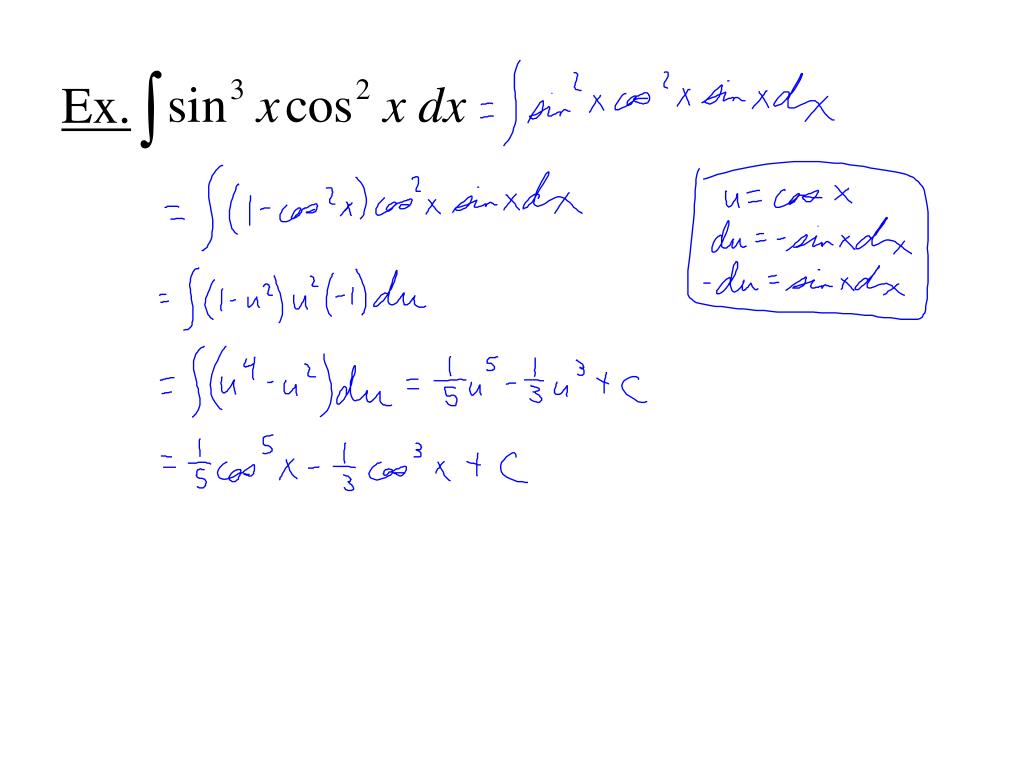 Ex. ∫ sin³ x cos² x dx = ∫ sin² x cos² x sin x dx
= ∫ (1 - cos² x) cos² x sin x dx
u = cos x
du = - sin x dx
- du = sin x dx
= ∫ (1 - u²) u² (-1) du
= ∫ (u⁴ - u²) du = 1/5 u⁵ - 1/3 u³ + C
= 1/5 cos⁵ x - 1/3 cos³ x + C